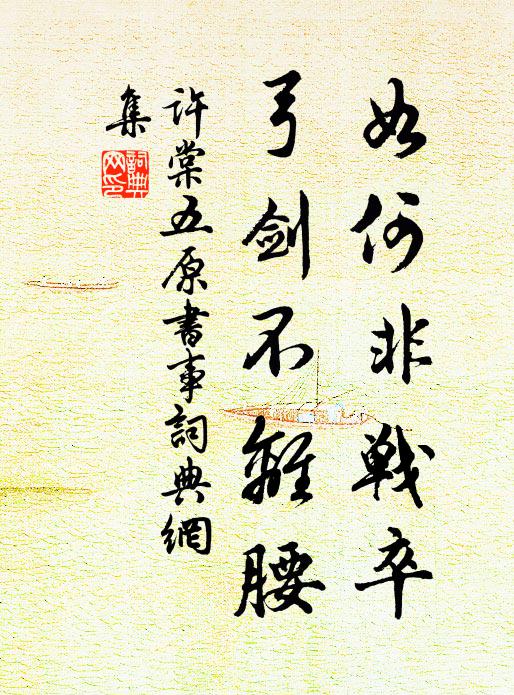 如何非戰卒
弓劍不離腰
許棠五原書事詞典網
集
詞典
网印